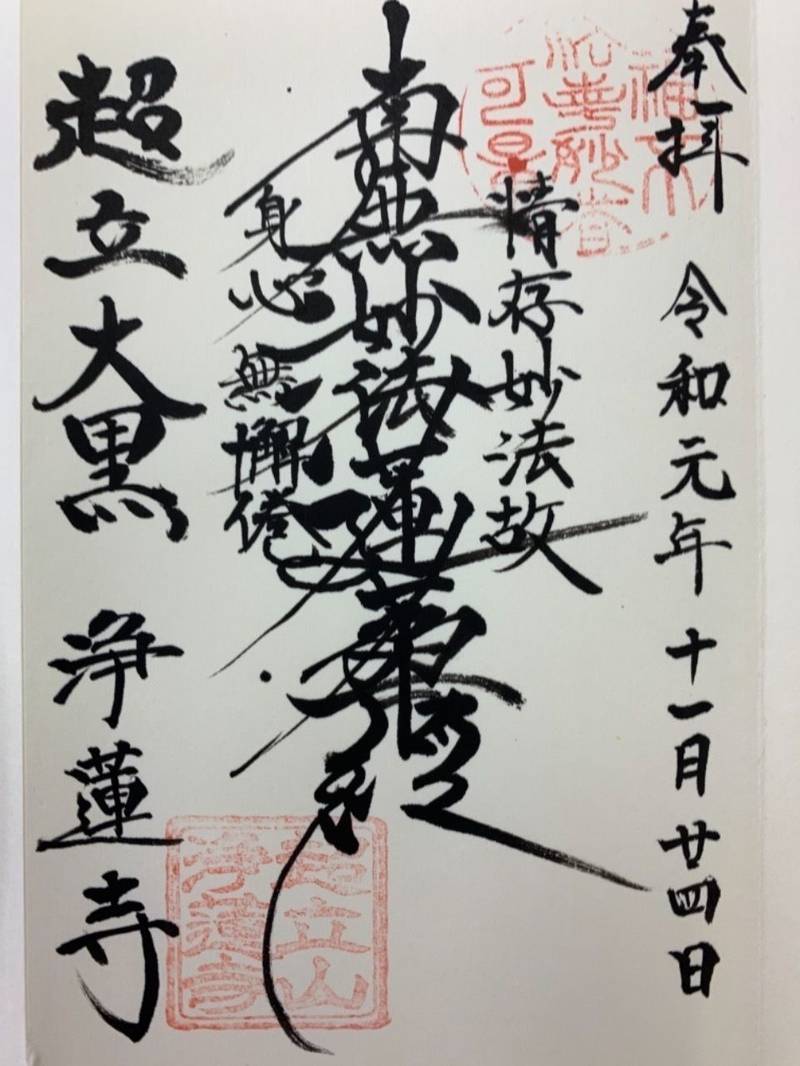 奉拝 令和元年十一月廿四日
情存妙法故
南無妙法蓮華経
身心無懈倦
超立大黒 浄蓮寺
超立山
浄蓮寺